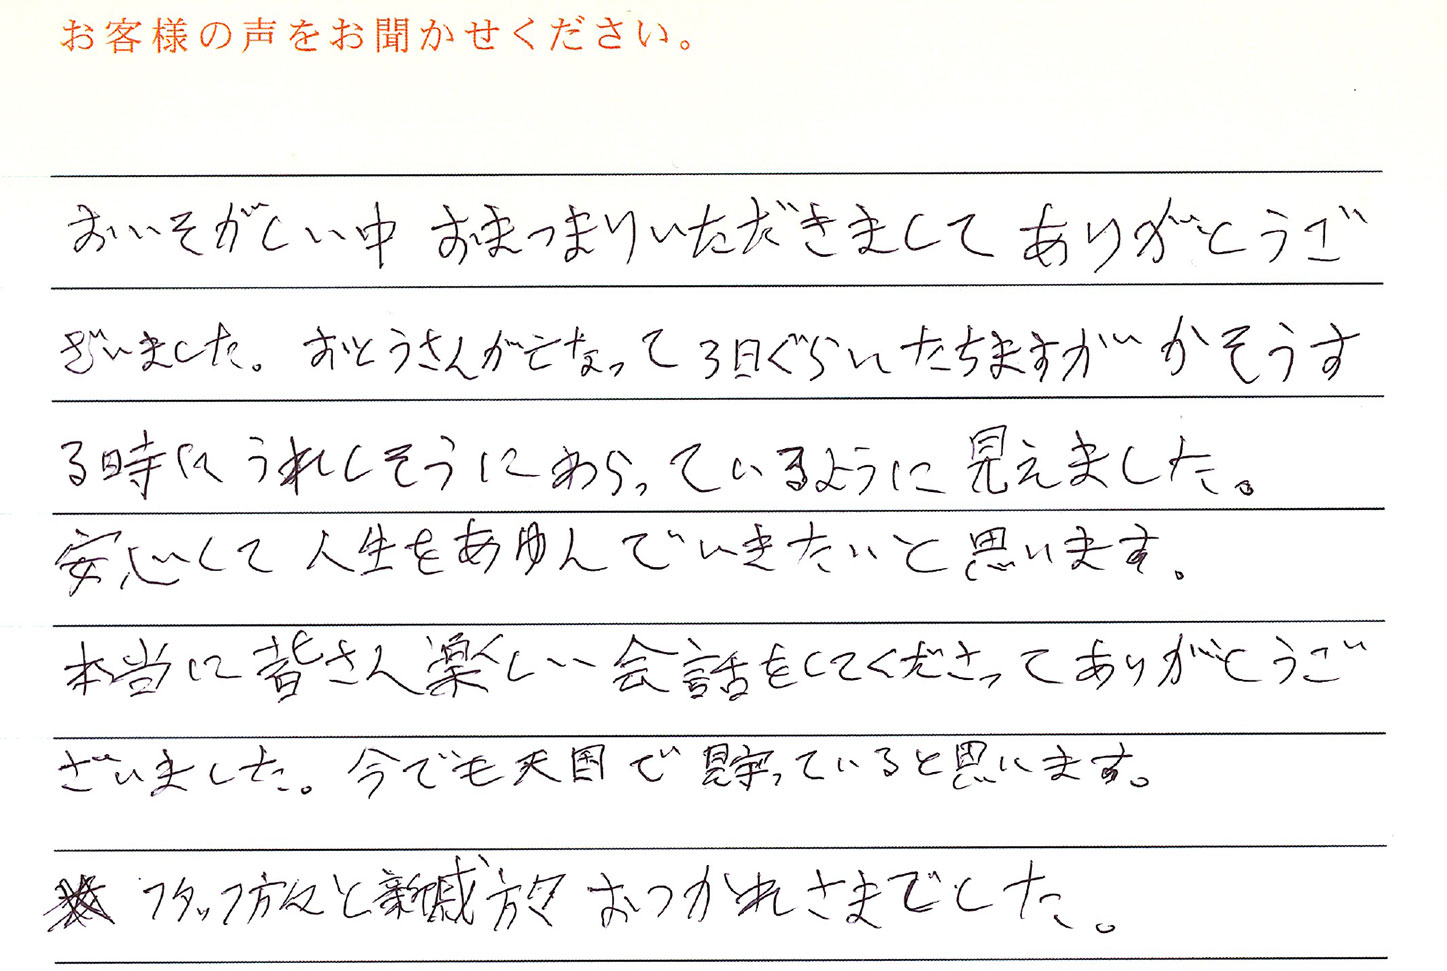 お客様の声をお聞かせください。
おいそがしい中 おまつまりいただきまして ありがとうご
ざいました。おとうさんが亡なって3日ぐらいたちますが かそうす
る時に うれしそうに わらっているように 見えました。
安心して 人生をあゆんでいきたいと 思います。
本当に 皆さん楽しい会話をしてくださってありがとうご
ざいました。今でも天国で 見守っていると思います。
フタッフ方々と親戚方々 おつかれさまでした。